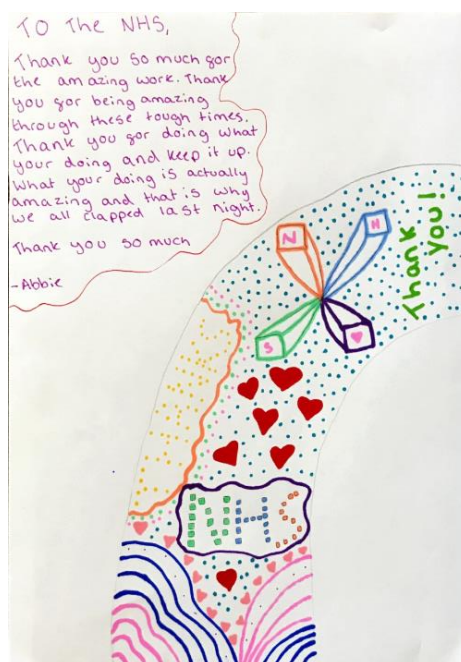 To The NHS,
Thank you so much for
the amazing work. Thank
you for being amazing
through these tough times.
Thank you for doing what
your doing and keep it up.
What your doing is actually
amazing and that is why
we all clapped last night.
Thank you so much
-Abbie
N H
S
Thank
you!
NHS